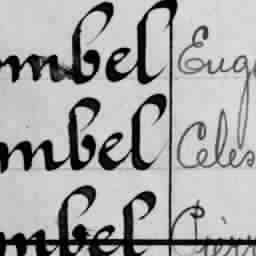 mbel Eug
mbel Celes
mbel